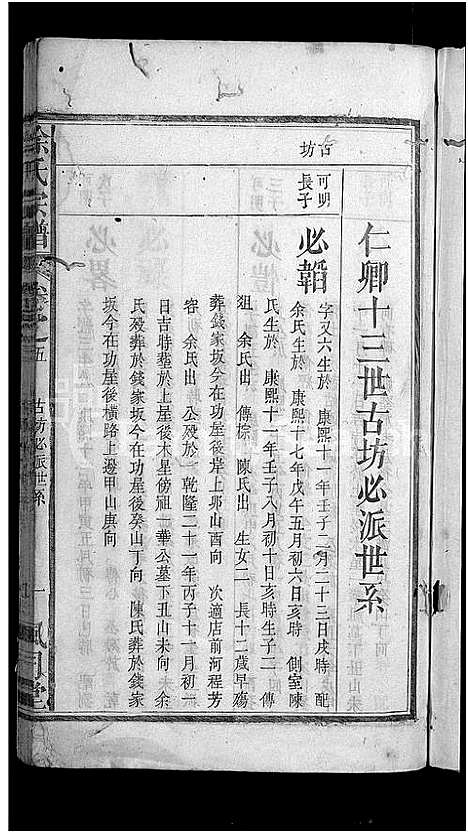 仁卿十三世古坊必派世系
古坊
可明長子
必韜
字又六生於 康熙十一年壬子二月二十三日戌時 配
余氏生於 康熙十七年戊午五月初六日亥時 側室陳
氏生於 康熙十一年壬子八月初十日亥時生子二 傳
狙 余氏出 傳棕 陳氏出 生女二 長十二歲早殤
葬錢家坂今在功屋後岸上卯山酉向 次適店前河程芳
容 余氏出 公歿於 乾隆二十一年丙子十一月初一
日吉時塟於上屋後木星傍祖一華公墓下丑山未向 余
氏歿葬於錢家坂今在功屋後癸山丁向 陳氏葬於錢家
坂今在功屋後橫路上邊甲山庚向
余氏宗譜
卷之五
古坊必派世系
一